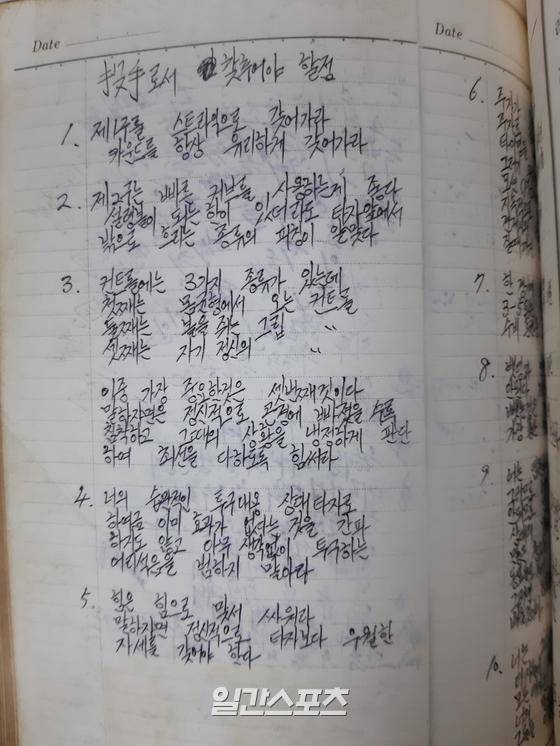 Date
投手로서 갖추어야 할점
1. 제1구를 스트라익으로 갖어가라
카운드를 항상 유리하게 갖어가라
2. 제2구는 빠른 커부를 사용하는게 좋다
실령 놓이 되는 한이 있데라도 타자앞에서
밖으로 흐르는 종류의 피칭이 알맞다
3. 컨트롤에는 3가지 종류가 있는데
첫째는 몸균형에서 오는 컨트롤
둘째는 볼을 쥐는 그립 〃
셋째는 자기 정신의 〃
이중 가장 중요한것은 셋번재것이다
말하자면은 정신적으로 곤경에 빠졌을 수록
침착하고 그대의 상황을 냉정하게 판단
하여 최선을 다하도록 힘써라
4. 너의 습관적인 투구내용 상대타자로
하여금 이미 효과가 없다는 것을 간파
하지도 않고 아무 생각없이 투구하는
어리석음을 범하지 말아라
5. 힘은 힘으로 맞서 싸워라
말하자면 정신적으로 타자보다 우월한
자세를 갖어야 한다
Date
6.
7.
8.
9.
10.
일간스포츠